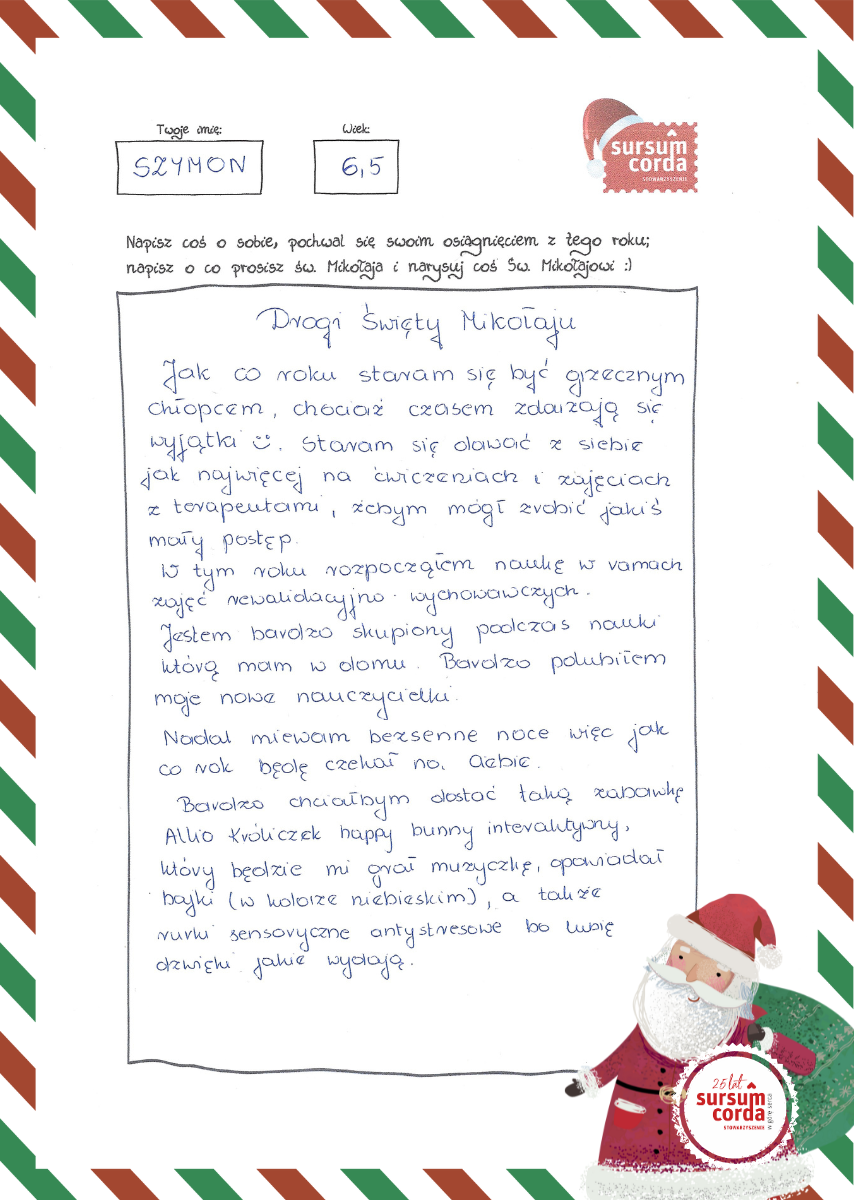 Twoje imię:
Wiek:
SZYMON
6,5
sursum
corda
STOWARZYSZENIE
Napisz coś o sobie, pochwal się swoim osiągnięciem z tego roku;
napisz o co prosisz św. Mikołaja i narysuj coś Św. Mikołajowi :)
Drogi Święty Mikołaju
Jak co roku staram się być grzecznym
chłopcem, chociaż czasem zdarzają się
wyjątki ☺. Staram się dawać z siebie
jak najwięcej na ćwiczeniach i zajęciach
z terapeutami, żebym mógł zrobić jakiś
mały postęp.
W tym roku rozpocząłem naukę w ramach
zajęć rewalidacyjno-wychowawczych.
Jestem bardzo skupiony podczas nauki
którą mam w domu. Bardzo polubiłem
moje nowe nauczycielki.
Nadal miewam bezsenne noce więc jak
co rok będę czekał na Ciebie.
Bardzo chciałbym dostać taką zabawkę
Allio Króliczek happy bunny interaktywny,
który będzie mi grał muzyczkę, opowiadał
bajki (w kolorze niebieskim), a także
rurki sensoryczne antystresowe bo lubię
dzwięki jakie wydają.
25 lat
sursum
corda
STOWARZYSZENIE
w górę serca